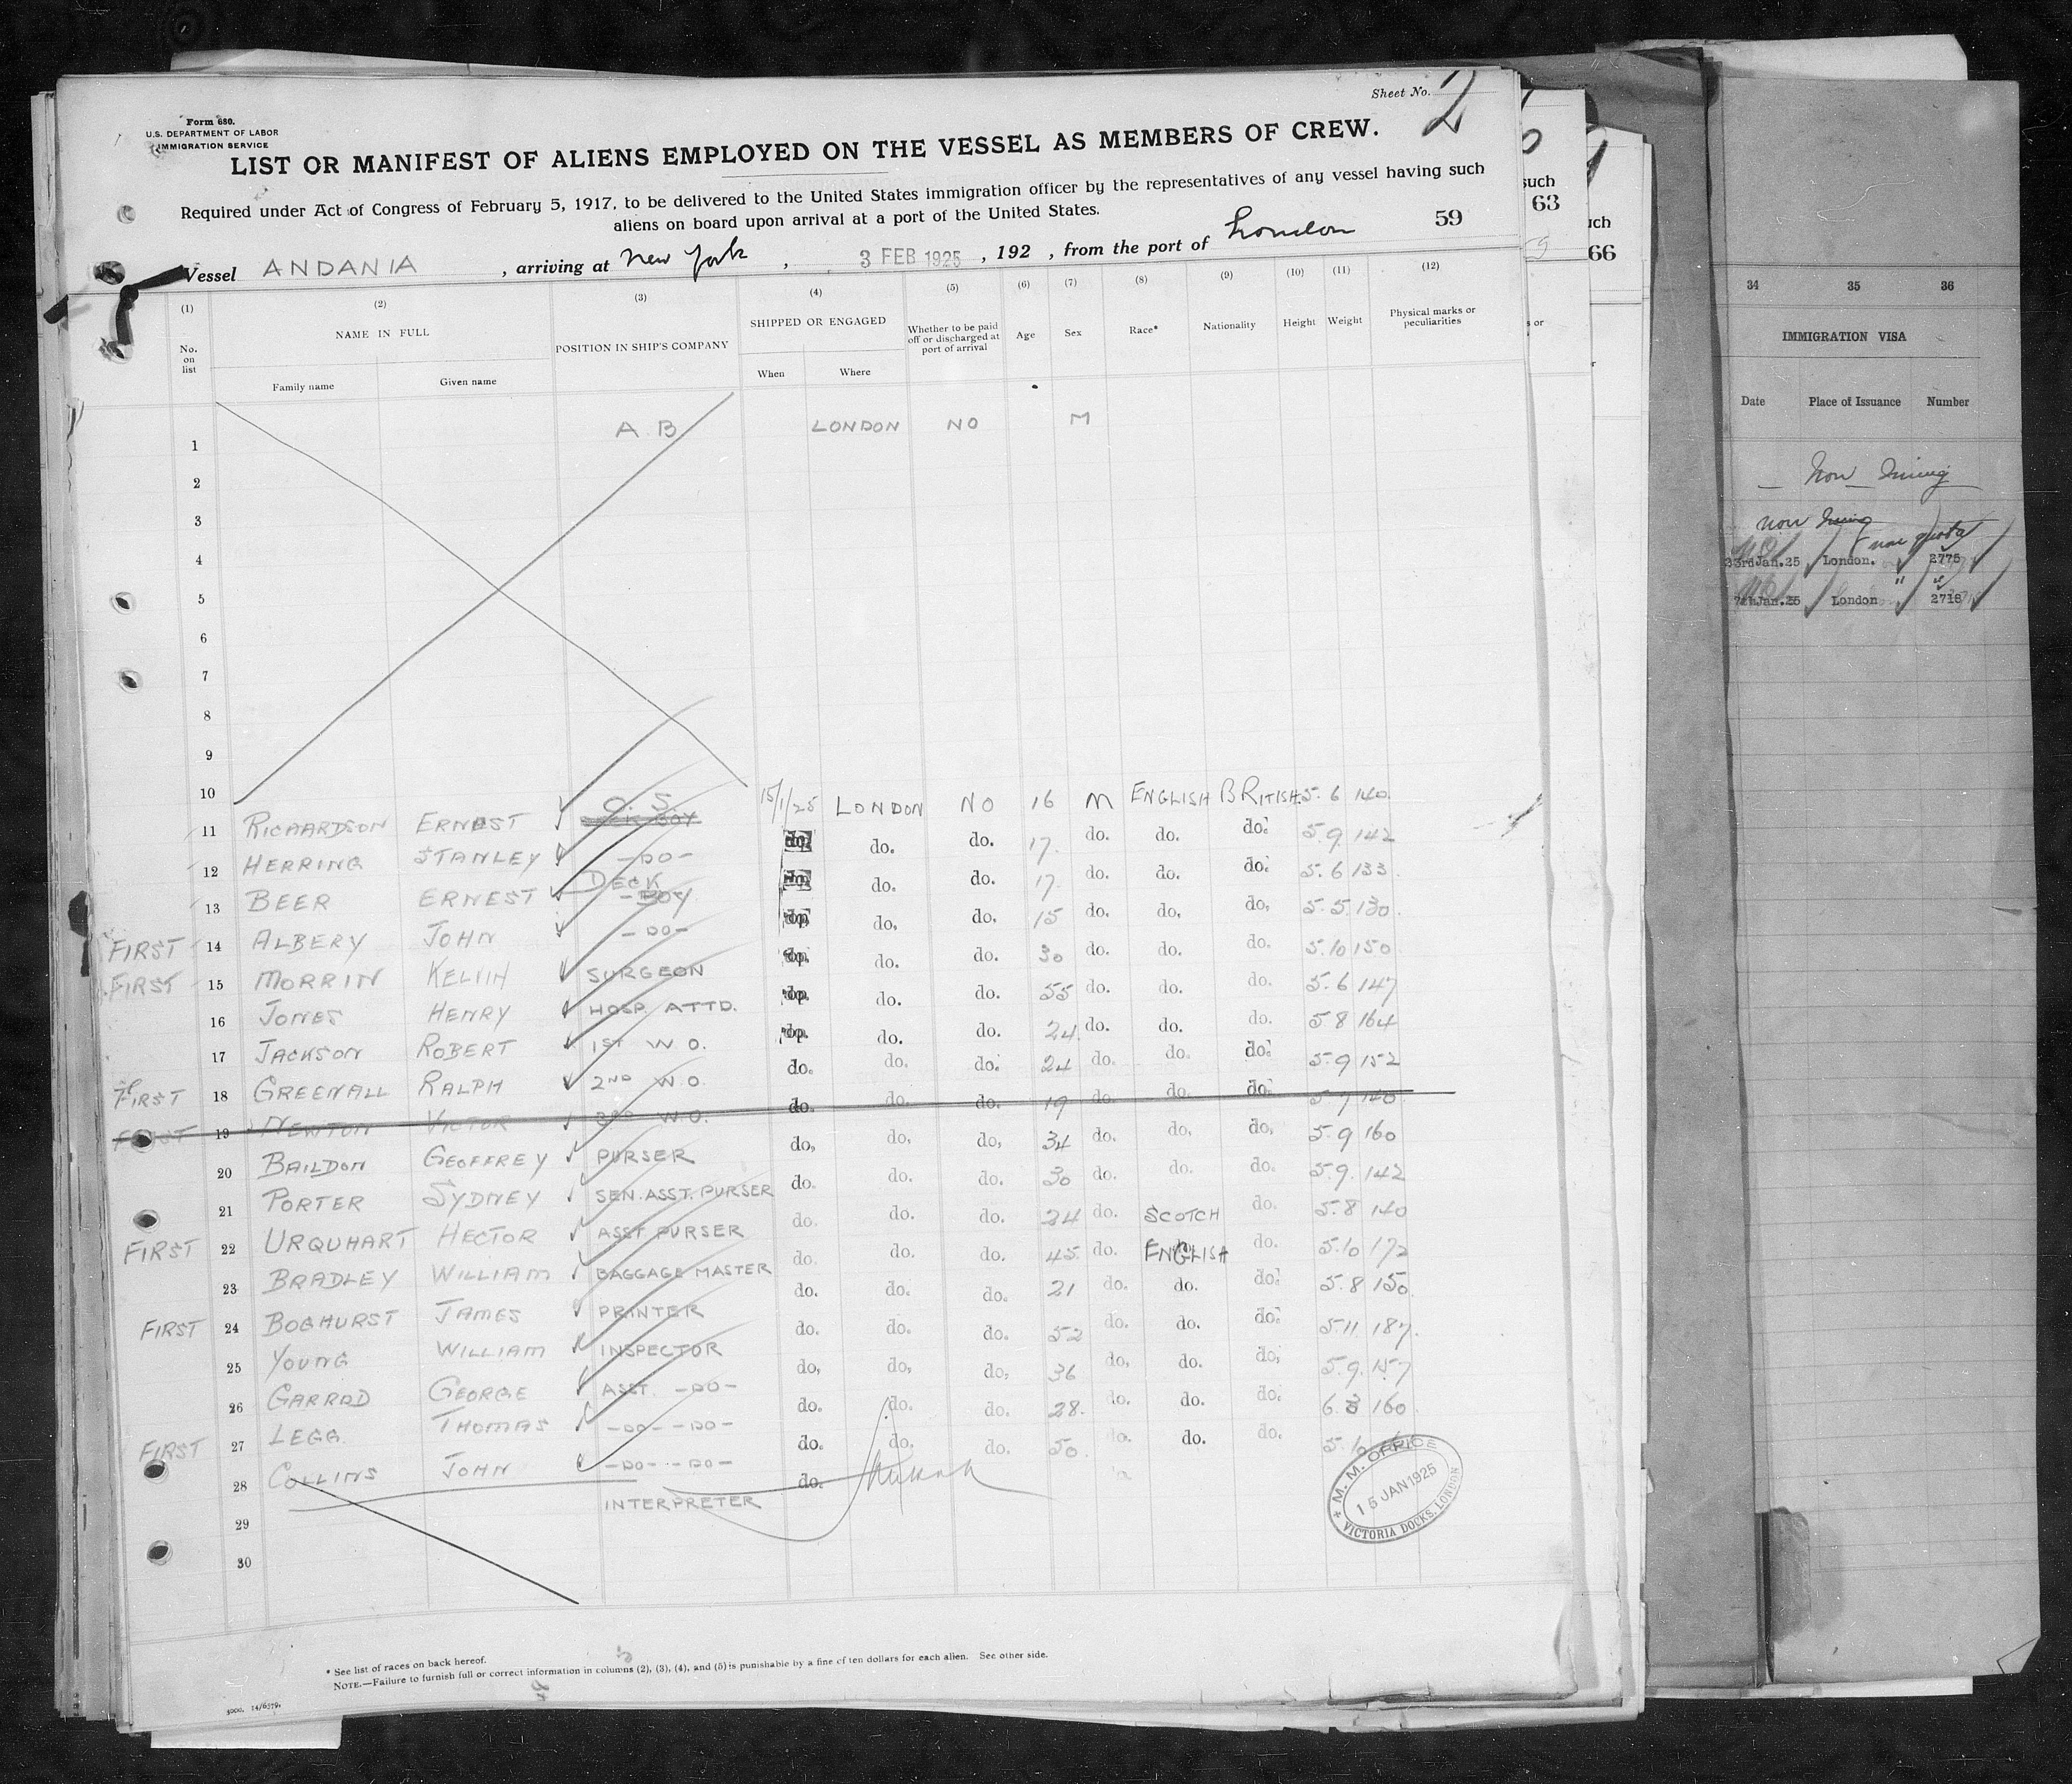 Sheet No. 2
Form 680.
U.S. DEPARTMENT OF LABOR
IMMIGRATION SERVICE
LIST OR MANIFEST OF ALIENS EMPLOYED ON THE VESSEL AS MEMBERS OF CREW.
Required under Act of Congress of February 5, 1917, to be delivered to the United States immigration officer by the representatives of any vessel having such
aliens on board upon arrival at a port of the United States.
59
Vessel ANDANIA , arriving at New York , 3 FEB 1925 , 192 , from the port of London
(1) (2) (3) (4) (5) (6) (7) (8) (9) (10) (11) (12)
No. on list NAME IN FULL POSITION IN SHIP'S COMPANY SHIPPED OR ENGAGED Whether to be paid off or discharged at port of arrival Age Sex Race* Nationality Height Weight Physical marks or peculiarities
Family name Given name When Where
1 A B LONDON NO M
2
3
4
5
6
7
8
9
10
11 RICHARDSON ERNEST O. S. 15/1/25 LONDON NO 16 M ENGLISH BRITISH 5.6 140
12 HERRING STANLEY -DO- do. do. do. 17 do. do. do. 5.9 142
13 BEER ERNEST DECK BOY do. do. do. 17 do. do. do. 5.6 133
FIRST 14 ALBERY JOHN -DO- do. do. do. 15 do. do. do. 5.5 130
FIRST 15 MORRIN KELVIN SURGEON do. do. do. 30 do. do. do. 5.10 150
16 JONES HENRY HOSP. ATTD. do. do. do. 55 do. do. do. 5.6 147
17 JACKSON ROBERT 1ST W.O. do. do. do. 24 do. do. do. 5 8 164
FIRST 18 GREENALL RALPH 2ND W.O. do. do. do. 24 do. do. do. 5.9 152
FIRST 19 NEWTON VICTOR 3RD W.O. do. do. do. 19 do. do. do. 5.7 140
20 BAILDON GEOFFREY PURSER do. do. do. 34 do. do. do. 5.9 160
21 PORTER SYDNEY SEN. ASST. PURSER do. do. do. 30 do. do. do. 5.9 142
FIRST 22 URQUHART HECTOR ASST PURSER do. do. do. 24 do. SCOTCH do. 5.8 140
23 BRADLEY WILLIAM BAGGAGE MASTER do. do. do. 45 do. ENGLISH do. 5.10 172
FIRST 24 BOGHURST JAMES PRINTER do. do. do. 21 do. do. do. 5.8 150
25 YOUNG WILLIAM INSPECTOR do. do. do. 52 do. do. do. 5.11 187
26 GARROD GEORGE ASST. -DO- do. do. do. 36 do. do. do. 5.9 157
FIRST 27 LEGG THOMAS -DO- -DO- do. do. do. 28 do. do. do. 6.3 160
28 COLLINS JOHN -DO- -DO- do. do. do. 50 do. do. do. 5.10
29 INTERPRETER do.
30
M. M. OFFICE
15 JAN 1925
VICTORIA DOCKS. LONDON
* See list of races on back hereof.
NOTE.—Failure to furnish full or correct information in columns (2), (3), (4), and (5) is punishable by a fine of ten dollars for each alien. See other side.
such
63
uch
66
34 35 36
IMMIGRATION VISA
Date Place of Issuance Number
Non
non
non quota
23rd Jan. 25 London. 2775
7th Jan. 25 London 2718